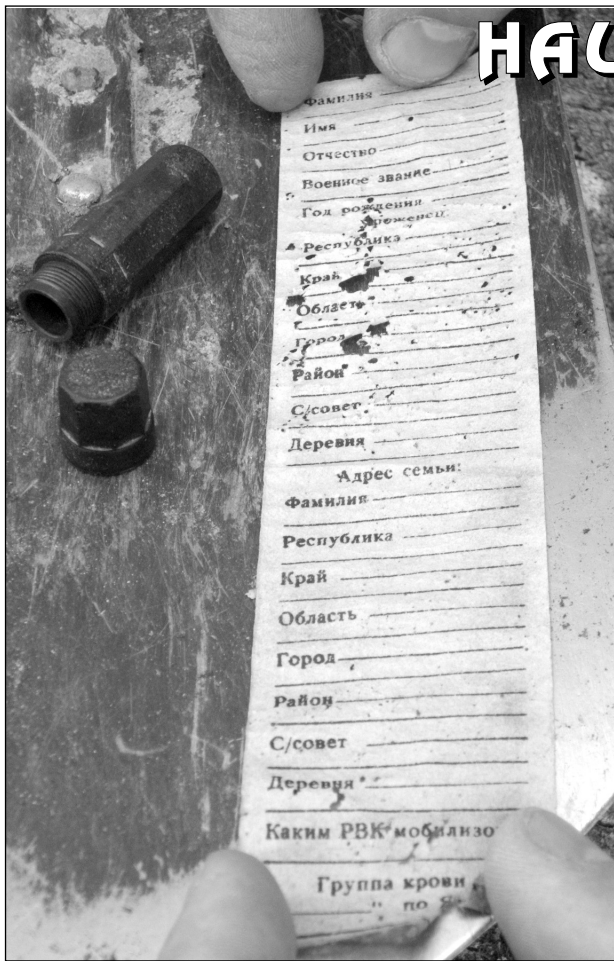 НАЦ
Фамилия
Имя
Отчество
Военное звание
Год рождения
уроженец
Республика
Край
Область
Город
Район
С/совет
Деревня
Адрес семьи:
Фамилия
Республика
Край
Область
Город
Район
С/совет
Деревня
Каким РВК мобилизо
Группа крови
по